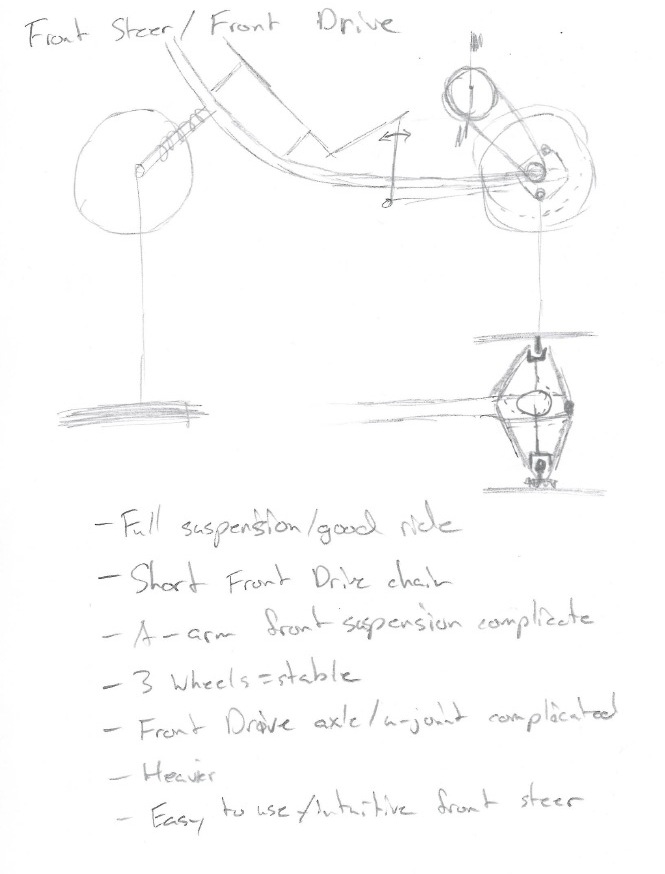 Front Steer/Front Drive
- Full suspension/good ride
- Short Front Drive chain
- A-arm front suspension complicate
- 3 Wheels = stable
- Front Drive axle/u-joint complicated
- Heavier
- Easy to use/intuitive front steer